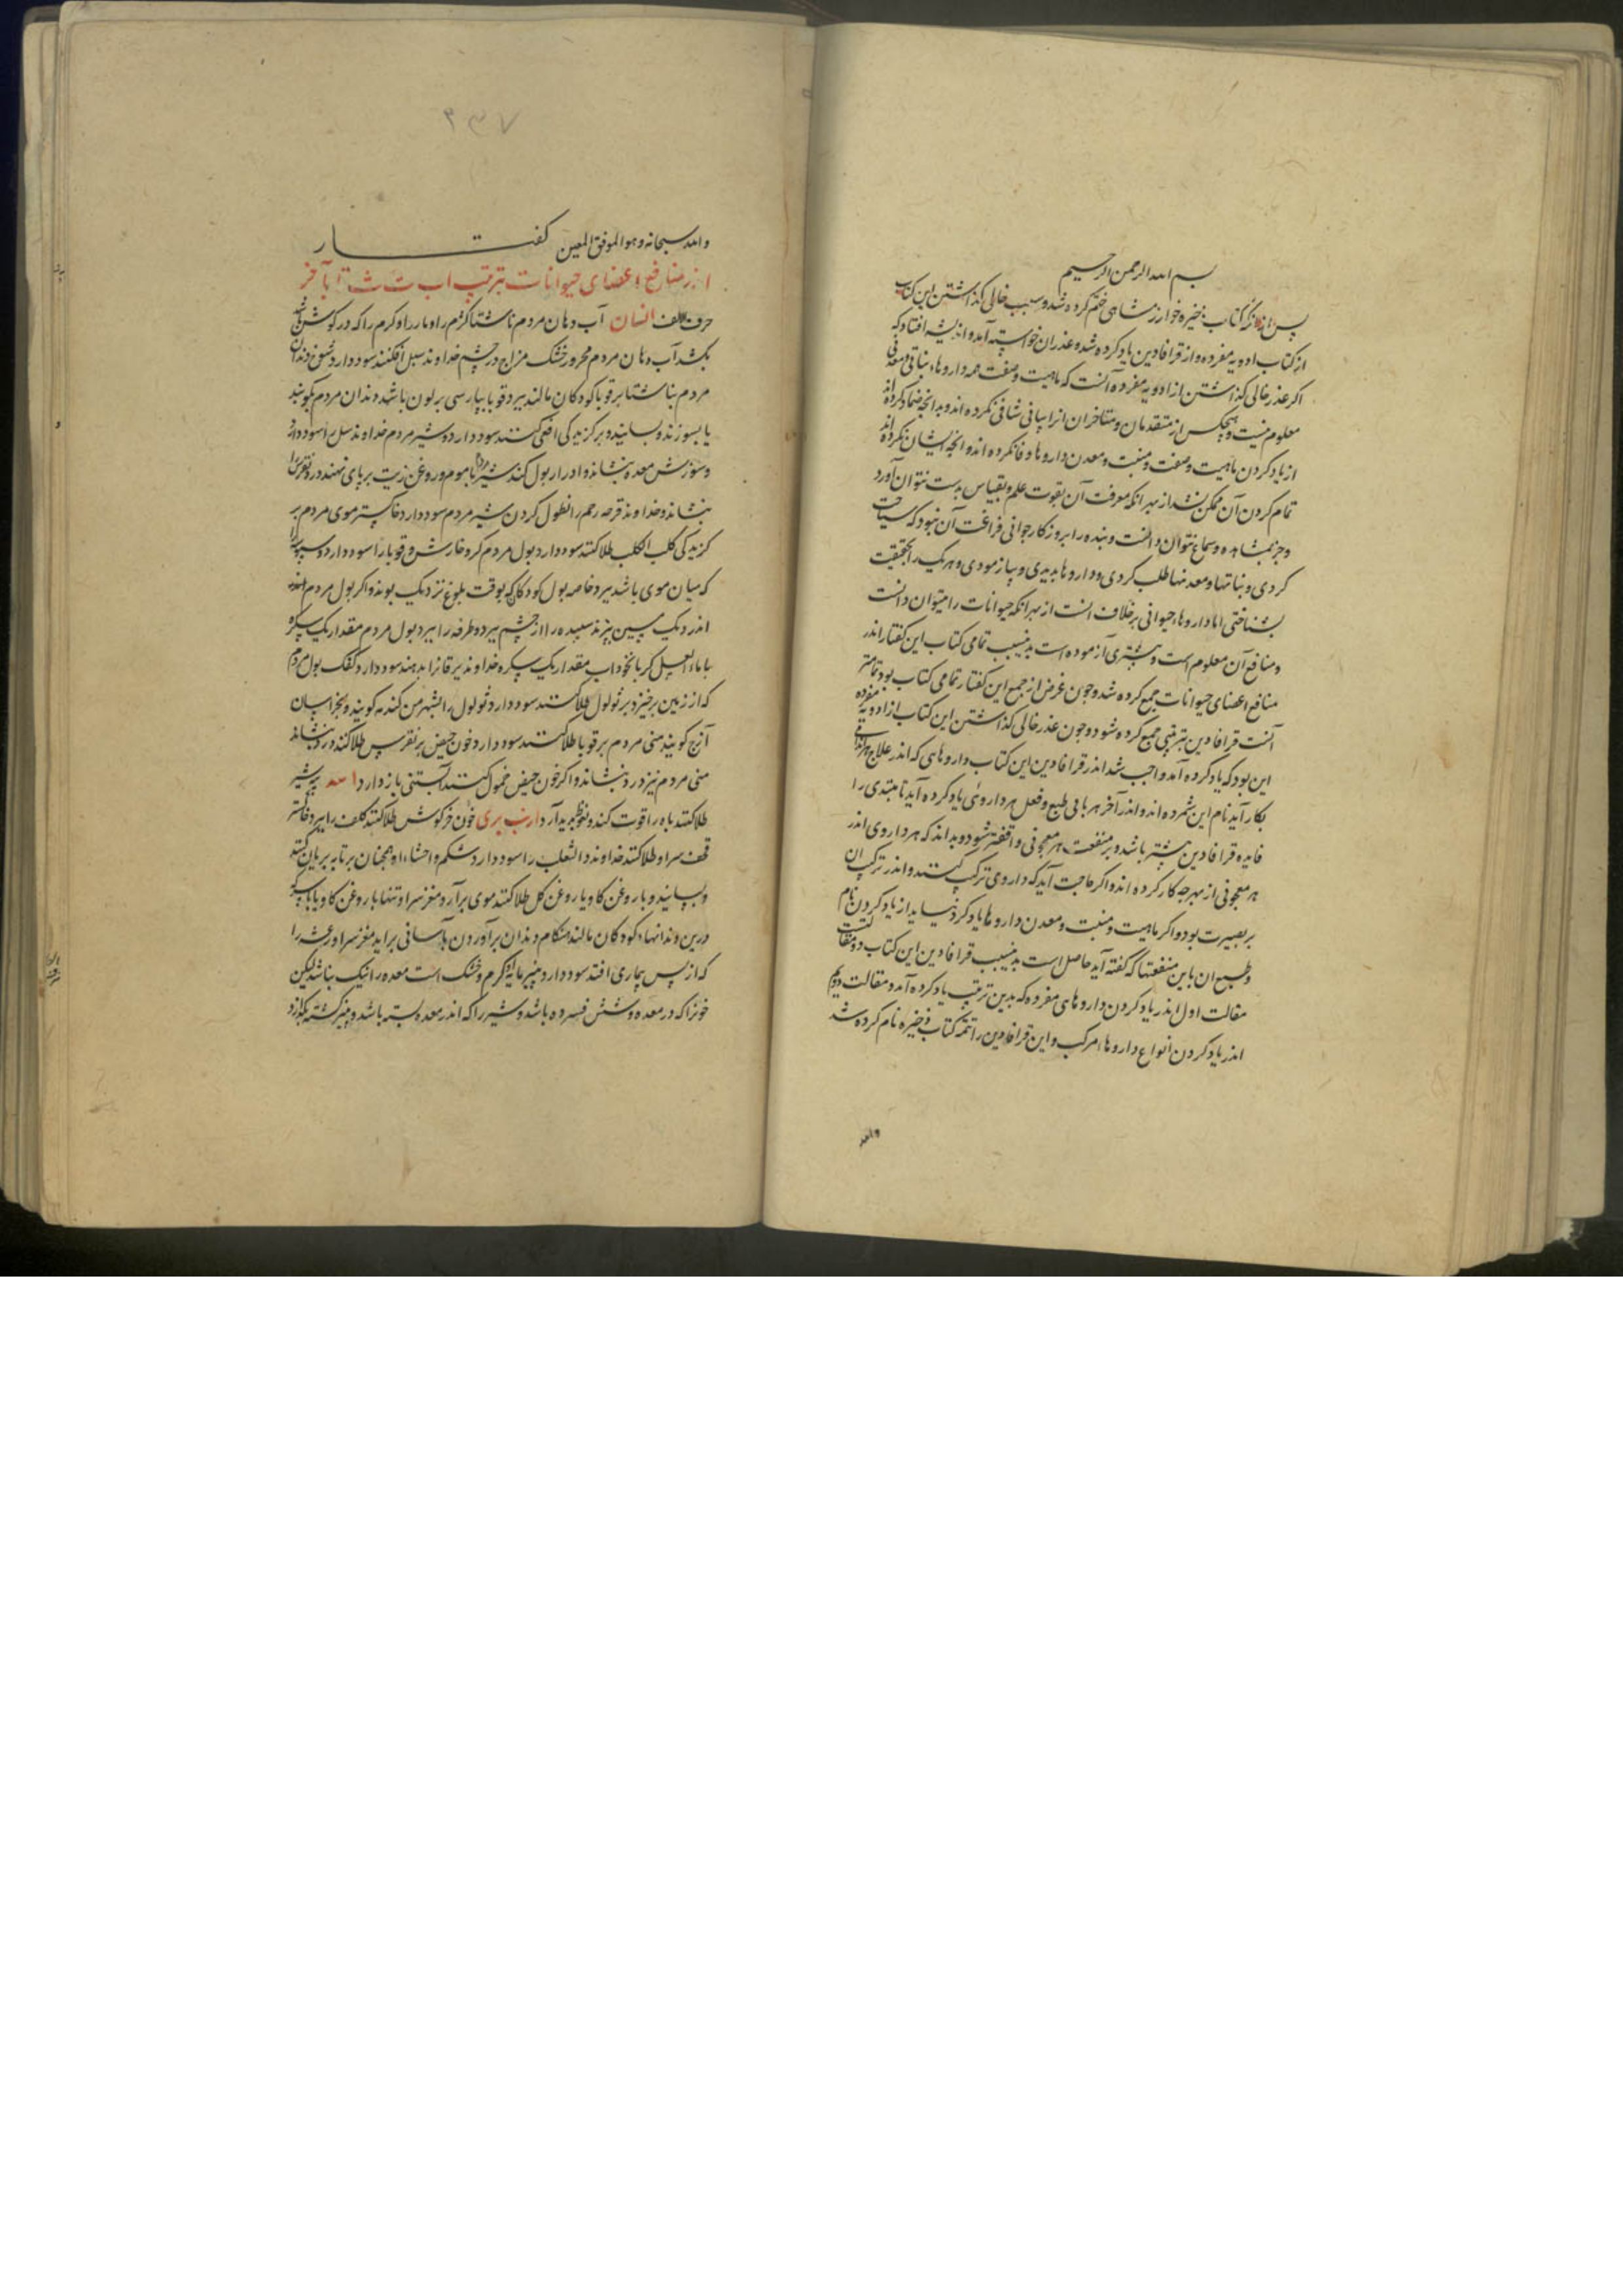 بسم الله الرحمن الرحیم
پس از آنکه کتاب ذخیره خوارزمشاهی ختم کرده شد و سبب خالی کذاشتن این کتاب
از کتاب ادویه مفرده و از قرافادین یاد کرده شد و عذر ان خواسته آمد و اندیشه افتاد که
اکر عذر خالی کذاشتن از ادویه مفرده آنست که ماهیت و صفت همه داروها نباتی و معدنی
معلوم نیست و هیچکس از متقدمان و متاخران انرا بیانی شافی نکرده اند و بدانچه ضمان کرده اند
از یاد کردن ماهیت و صفت و منبت و معدن داروها وفا نکرده اند و انچه ایشان نکرده اند
تمام کردن آن ممکن نشد از بهر انکه معرفت آن بقوت علم و بقیاس بدست نتوان آورد
و جز بمشاهده و سماع نتوان دانست و بنده را بروزکار جوانی فراغت آن نبود که سیاحت
کردی و نباتها و معدنها طلب کردی و داروها بدیدی و بیازمودی و هر یک را بحقیقت
بشناختی اما داروها حیوانی برخلاف انست از بهر انکه حیوانات را میتوان دانست
و منافع آن معلوم است و بیشتری آزموده است بدین سبب تمامی کتاب این کفتار اندر
منافع اعضای حیوانات جمع کرده شد و چون غرض از جمع این کفتار تمامی کتاب بود تمامتر
آنست قرافادین بترتیبی جمع کرده شود و چون عذر خالی کذاشتن این کتاب از ادویه مفرده
این بود که یاد کرده آمد واجب شد اندر قرافادین این کتاب داروهایی که اندر علاج
بکار آید نام این شمرده اند و اندر آخر هر بابی طبع و فعل هر داروئی یاد کرده آید تا مبتدی را
فایده قرافادین بیشتر باشد و بر منفعت هر معجونی واقفتر شود و بداند که هر داروی اندر
هر معجونی از بهر چه کار کرده اند و اکر حاجت آید که داروی ترکیب کنند و اندر ترکیب ان
بر بصیرت بود و اکر ماهیت و منبت و معدن داروها یاد کرد نیاید از یاد کردن نام
و طبع ان باین منفعتها که کفته آید حاصل است بدین سبب قرافادین این کتاب دو مقالت
مقالت اول اندر یاد کردن داروهای مفرده که بدین ترتیب یاد کرده آمد و مقالت دویم
اندر یاد کردن انواع داروها مرکب و این قرافادین را تتمه کتاب ذخیره نام کرده شد
والله
۲۳۷
والله سبحانه و هو الموفق المعین کفتار
اندر منافع اعضای حیوانات بترتیب اب ت ث تا بآخر
حرف الالف انسان آب دهان مردم ناشتا کژدم را و مار را و کرم را که در کوش باشد
بکشد آب دهان مردم محرور خشک مزاج در چشم خداوند سبل افکنند سود دارد
مردم ناشتا بر قوبا کودکان مالند ببرد قوبا بپارسی بریون باشد دندان مردم بکوبند
یا بسوزند و بسایند و بر کزیدکی افعی کنند سود دارد و شیر مردم خداوند سل را سود دارد
و سوزش معده بنشاند و ادرار بول کند شیر مردم با موم و روغن زیت بر پای نهند درد نقرس را
بنشاند و خداوند قرحه رحم را نطول کردن شیر مردم سود دارد خاکستر موی مردم بر
کزیدکی کلب الکلب طلا کنند سود دارد بول مردم کر و خارش و قوبا را سود دارد و سبوسه را
که میان موی باشد ببرد خاصه بول کودکان که بوقت بلوغ نزدیک بوند و اکر بول مردم
اندر دیک مسین بپزند سپیده را از چشم ببرد و طرفه را ببرد بول مردم مقدار یک سکره
با ماء العسل کر با نخوداب مقدار یک سکره خداوند یرقان را بدهند سود دارد کفک بول مردم
که از زمین برخیزد بر ثولول طلا کنند سود دارد و ثولول را بشهر من کندمه کویند و بخراسان
آزخ کویند منی مردم بر قوبا طلا کنند سود دارد خون حیض بر نقرس طلا کنند درد بنشاند
منی مردم نیز درد بنشاند و اکر خون حیض حمول کنند آبستنی باز دارد اسد پیه شیر
طلا کنند باه را قوت کند و نعوظ پدید آرد ارنب بری خون خرکوش طلا کنند کلف را ببرد خاکستر
قحف سر او طلا کنند خداوند داء الثعلب را سود دارد شکم و احشاء او همچنان بر تابه بریان کنند
و بسایند و با روغن کاو یا روغن کل طلا کنند موی برآرد و مغز سر او تنها با روغن کاو یا با مسکه
در بن دندانهاء کودکان مالند هنکام دندان برآوردن بآسانی براید مغز سر او رعشه را
که از پس بیماری افتد سود دارد و پنیر مایه او کرم و خشک است معده را نیک نباشد لیکن
خونرا که در معده و شش فسرده باشد و شیر را که اندر معده بسته باشد و پنیر کشته بکدازد